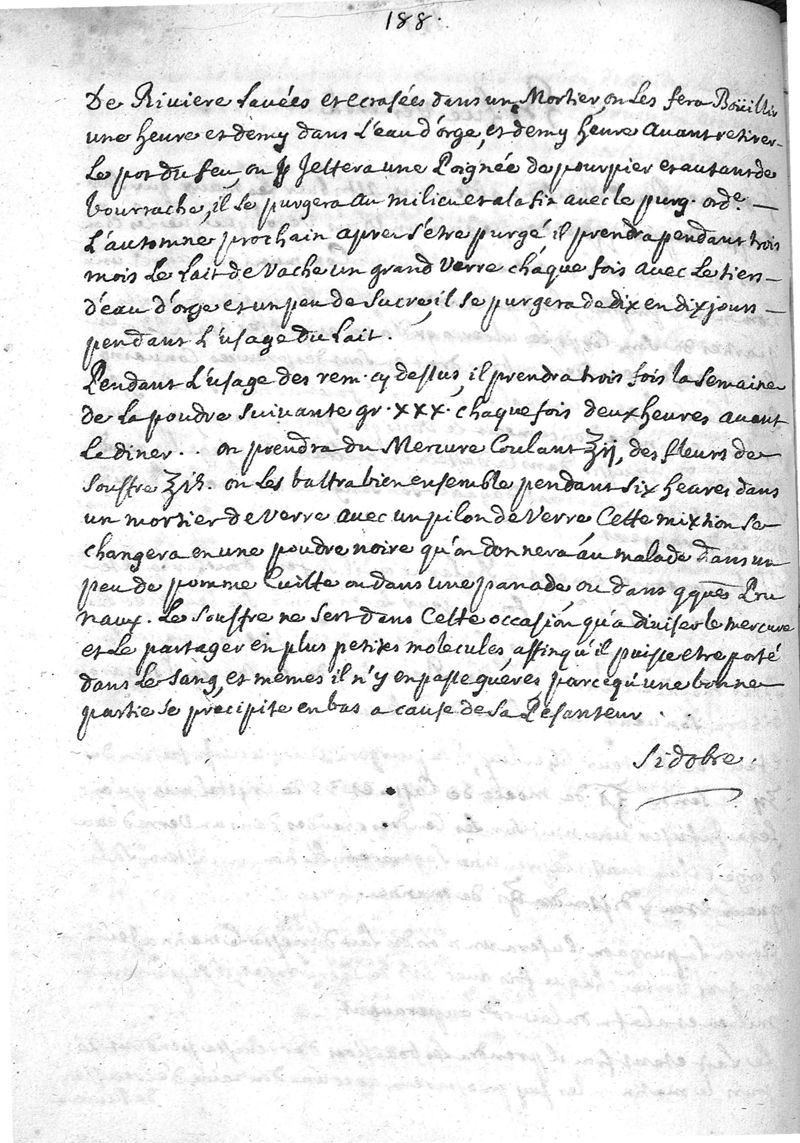 188.
De Riviere Lavées et ecrasées dans un Mortier, on Les fera Boüillir
une heure et demy dans L'eau d'orge, et demy heure avant retirer
Le pot du feu, on Jettera une Poignée de pourpier et autant de
bourrache, il se purgera au milieu et a la fin avec le purg. orde. —
L'automne prochain apres s'étre purgé il prendra pendant trois
mois Le Lait de Vache un grand Verre cháque fois avec Le tiers —
d'eau d'orge et un peu de Sucre, il se purgera de dix en dix jours —
pendant L'usage du Lait.
Pendant L'usage des rem. cy dessus, il prendra trois fois la Semaine
de La poudre Suivante gr. xxx. chaque fois deux heures avant
Le diner.. on prendra du Mercure Coulant ʒij, des fleurs de
Souffre ʒiß. on Les battra bien ensemble pendant Six heures dans
un mortier de Verre avec un pilon de Verre, Cette mixtion Se
changera en une poudre noire qu'on donnera au malade dans un
peu de pomme Cuitte ou dans une panade ou dans qques Pru
naux. Le Souffre ne Sert dans Cette occasion qu'a diviser le mercure
et Le partager en plus petites molecules, affin qu'il puisse etre porté
dans Le Sang, et mémes il n'y en passe guéres parcequ'une bonne
partie se precipite en bas a cause de Sa Pesanteur.
Sidobre.